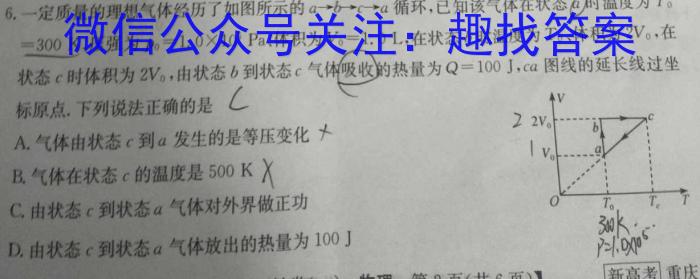 6. 一定质量的理想气体经历了如图所示的 a→b→c→a 循环,已知该气体在状态a时温度为T₀
=300
微信公众号关注:趣找答案
状态 c 时体积为 2V₀,由状态 b 到状态 c 气体吸收的热量为 Q=100 J,ca 图线的延长线过坐
标原点. 下列说法正确的是 C
A. 气体由状态 c 到 a 发生的是等压变化 ×
B. 气体在状态 c 的温度是 500 K X
C. 由状态 c 到状态 a 气体对外界做正功
D. 由状态 c 到状态 a 气体放出的热量为 100 J
V
2 2V₀ b c
1 V₀ a
O T₀ Tc T
300K
P=1.0×10⁵
新高考 重庆